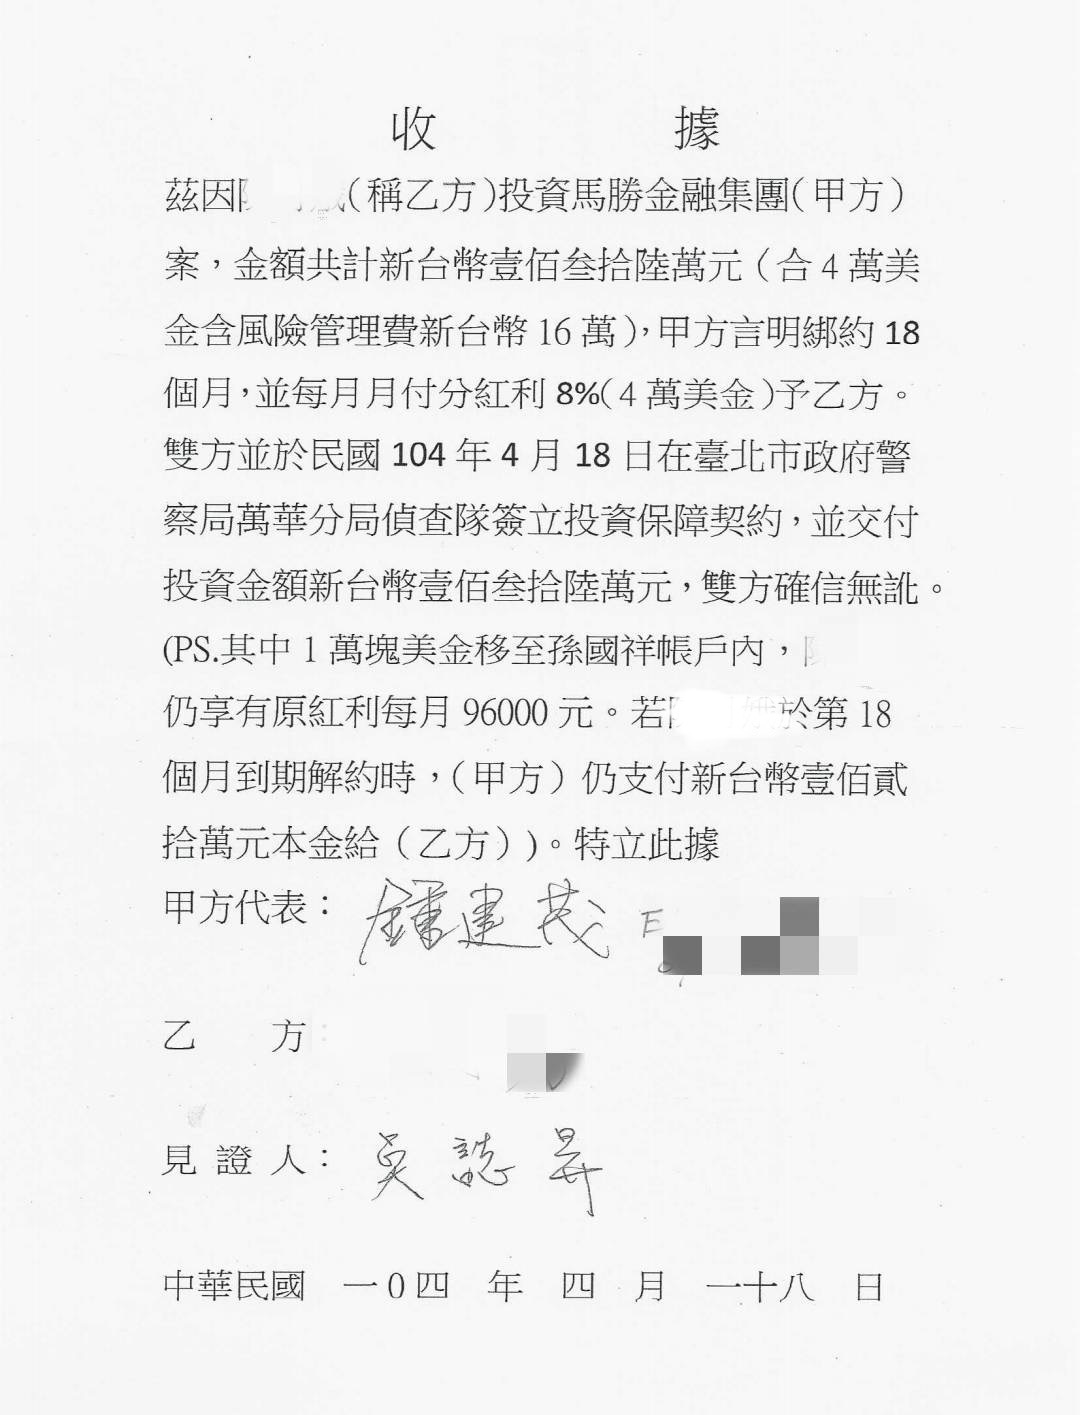 收據
茲因 (稱乙方)投資馬勝金融集團(甲方)
案，金額共計新台幣壹佰叁拾陸萬元（合4萬美
金含風險管理費新台幣16萬)，甲方言明綁約18
個月，並每月月付分紅利8%(4萬美金)予乙方。
雙方並於民國104年4月18日在臺北市政府警
察局萬華分局偵查隊簽立投資保障契約，並交付
投資金額新台幣壹佰叁拾陸萬元，雙方確信無訛。
(PS.其中1萬塊美金移至孫國祥帳戶內，
仍享有原紅利每月96000元。若 於第18
個月到期解約時，（甲方）仍支付新台幣壹佰貳
拾萬元本金給（乙方）)。特立此據
甲方代表：鍾建茂 E
乙方：
見證人：吳誌昇
中華民國 一0四 年 四 月 一十八 日